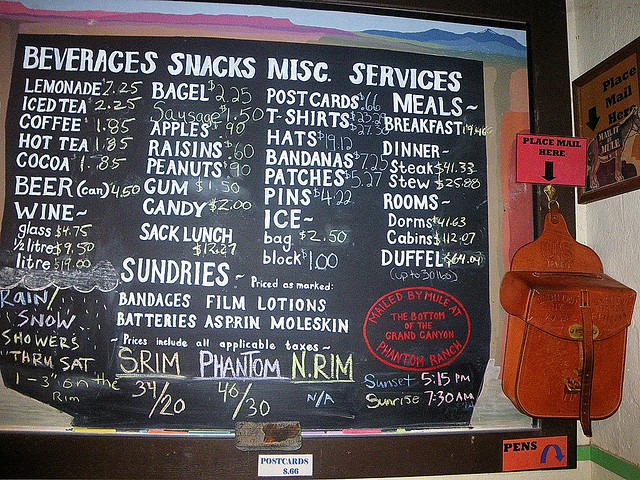 BEVERAGES SNACKS MISC. SERVICES
LEMONADE $2.25
ICED TEA 2.25
COFFEE 1.85
HOT TEA 1.85
COCOA 1.85
BEER (can) 4.50
WINE~
glass $4.75
½ litro $9.50
litro $19.00
BAGEL $2.25
Sausage $1.50
APPLES $.90
RAISINS $.60
PEANUTS $.90
GUM $1.50
CANDY $2.00
SACK LUNCH
$12.27
POSTCARDS $.66
T-SHIRTS
HATS $19.12
BANDANAS $7.25
PATCHES $5.27
PINS $4.22
ICE~
bag $2.50
block $1.00
MEALS~
BREAKFAST
DINNER~
Steak $41.33
Stew $25.88
ROOMS~
Dorms $41.63
Cabins $112.07
DUFFEL $64.09
(up to 30 lbs)
SUNDRIES~ Priced as marked:
BANDAGES FILM LOTIONS
BATTERIES ASPRIN MOLESKIN
~ Prices include all applicable taxes ~
MAILED BY MULE AT
THE BOTTOM
OF THE
GRAND CANYON
PHANTOM RANCH
RAIN/
SNOW
SHOWERS
THRU SAT
1-3" on the
Rim
S.RIM PHANTOM N.RIM
34/20 46/30 N/A
Sunset 5:15 PM
Sunrise 7:30 AM
POSTCARDS
$.66
PLACE MAIL
HERE
Place
Mail
Here
MAIL BY
MULE
PENS